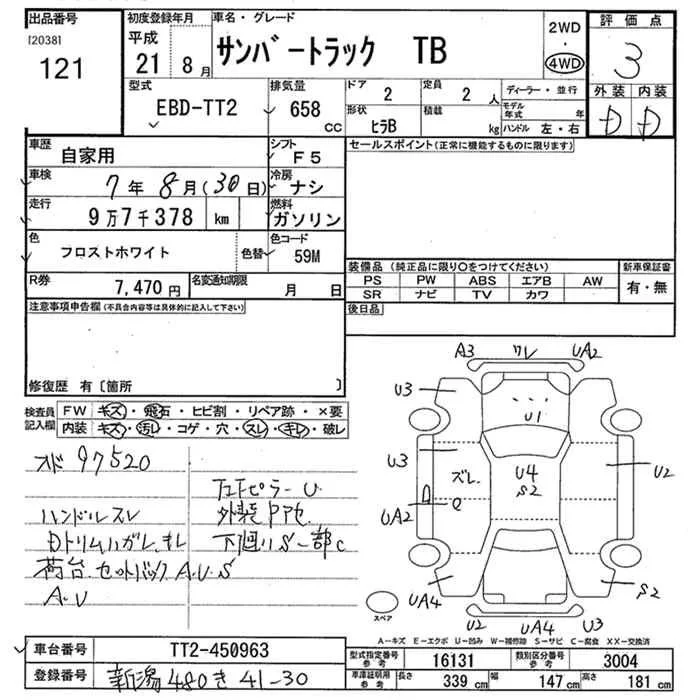 出品番号
[2038]
121
初度登録年月
平成
21 8 月
車名・グレード
サンバートラック TB
2WD
・
4WD
評価点
3
外装 内装
D D
型式
EBD-TT2
排気量
658
CC
ドア
2
形状
ヒラB
定員
2 人
積載
kg
ディーラー・並行
モデル年式 年
ハンドル 左・右
車歴
自家用
シフト
F5
車検
7 年 8 月(30日)
冷房
ナシ
走行
9万7千378 km
燃料
ガソリン
色
フロストホワイト
色替
色コード
59M
R券
7,470 円
名変通知期限
月 日
セールスポイント(正常に機能するものに限ります)
装備品 (純正品に限り〇をつけてください)
PS PW ABS エアB AW
SR ナビ TV カワ
新車保証書
有・無
後日品
注意事項申告欄(不具合内容等は具体的に記入して下さい)
修復歴 有〔箇所 〕
検査員
記入欄
FW キズ・飛石・ヒビ割・リペア跡・×要
内装 キズ・汚レ・コゲ・穴・スレ・キレ・破レ
メド 97520
ハンドルスレ
Dトリムハガレ、キレ
荷台、セットバック A.U.S
A.U
外装
下廻りS一部C
A3 ワレ UA2
U3
U1
U3
ズレ
U4
S2
U2
UA2
UA4
U2 UA4 U3
S2
スペア
A-キズ E-エクボ U-凹み W-補修跡 S-サビ C-腐食 XX-交換済
車台番号
TT2-450963
登録番号
新潟 480 き 41-30
型式指定番号
参考
16131
類別区分番号
参考
3004
車庫証明用
参考
長さ 339 cm
幅 147 cm
高さ 181 cm